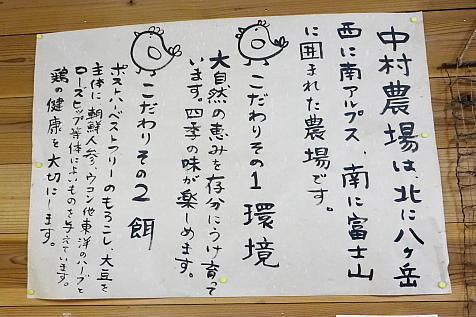 中村農場は、北に八ヶ岳
西に南アルプス、南に富士山
に囲まれた農場です。
こだわりその1 環境
大自然の恵みを存分にうけ育って
います。四季の味が楽しめます。
こだわりその2 餌
ポストハーベストフリーのもろこし、大豆を
主体に、朝鮮人参、ウコン他東洋のハーブと
ローズヒップ等体によいものを与えています。
鶏の健康を大切にします。